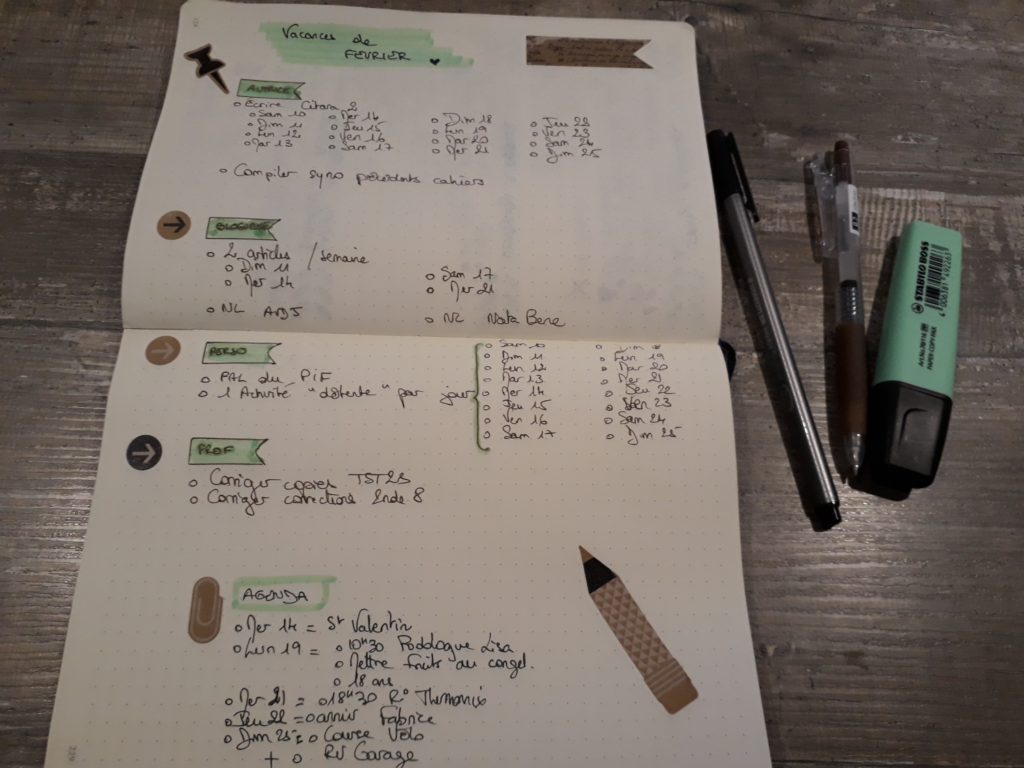 Vacances de
FEVRIER ♥
AUTRICE
o Ecrire Citara 2
o Sam 10 o Mer 14 o Dim 18 o Jeu 22
o Dim 11 o Jeu 15 o Lun 19 o Ven 23
o Lun 12 o Ven 16 o Mar 20 o Sam 24
o Mar 13 o Sam 17 o Mer 21 o Dim 25
o Compiler syno précédents cahiers
BLOGUEUSE
o 2 articles / semaine
o Dim 11 o Sam 17
o Mer 14 o Mer 21
o NL ADJ o NL Nota Bene
PERSO
o PAL du PIF
o 1 Activité "détente" par jour
o Sam 10
o Dim 11 o Lun 19
o Lun 12
o Mar 13 o Mer 21
o Mer 14 o Jeu 22
o Jeu 15 o Ven 23
o Ven 16 o Sam 24
o Sam 17 o Dim 25
PROF
o Corriger copies TST2S
o Corriger corrections 2nde 8
AGENDA
o Mer 14 = St Valentin
o Lun 19 = o 10H30 Podologue Lisa
o Mettre fruits au congel.
o 18 ans
o Mer 21 = o 18H30 R° Thermomix
o Jeu 22 = o anniv Fabrice
o Dim 25 = o Course Vélo
+ o RV Garage
STABILO BOSS